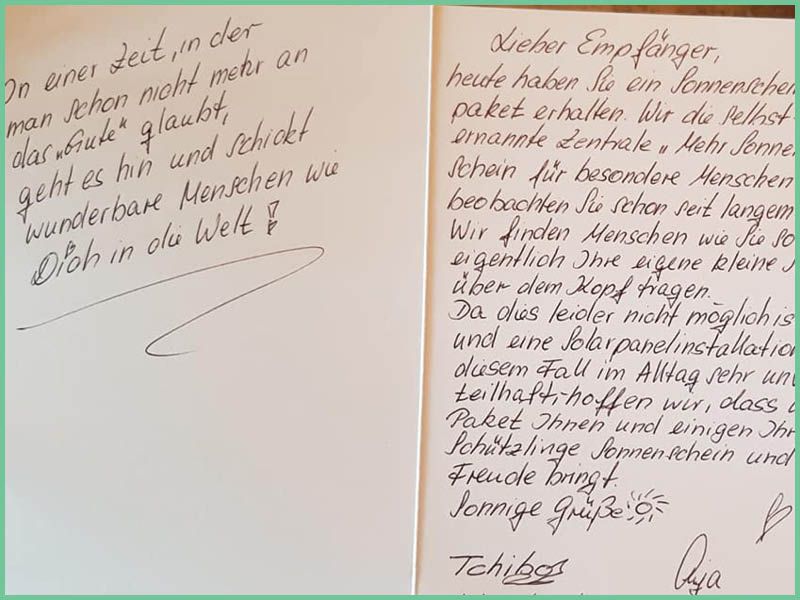 In einer Zeit, in der
man schon nicht mehr an
das „Gute“ glaubt,
geht es hin und schickt
wunderbare Menschen wie
Dich in die Welt!
Lieber Empfänger,
heute haben Sie ein Sonnenschein
paket erhalten. Wir die selbst-
ernannte Zentrale „Mehr Sonnen
schein für besondere Menschen
beobachten Sie schon seit langem
Wir finden Menschen wie Sie so
eigentlich Ihre eigene kleine
über dem Kopf tragen.
Da dies leider nicht möglich is
und eine Solarpanelinstallation
diesem Fall im Alltag sehr un
teilhaft, hoffen wir, dass
Paket Ihnen und einigen Ihr
Schützlinge Sonnenschein und
Freude bringt.
Sonnige Grüße
Tchibo
Anja